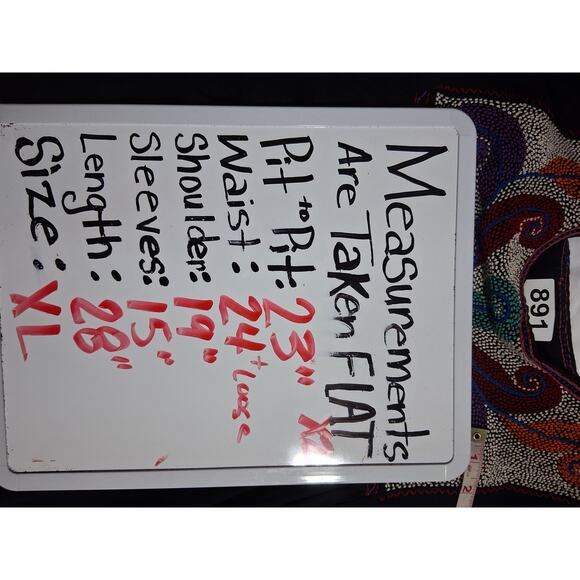 Measurements
Are Taken FLAT
Pit to Pit: 23" X2
Waist: 24 + Loose
Shoulder: 19"
Sleeves: 15"
Length: 28"
Size: XL
891
1
2